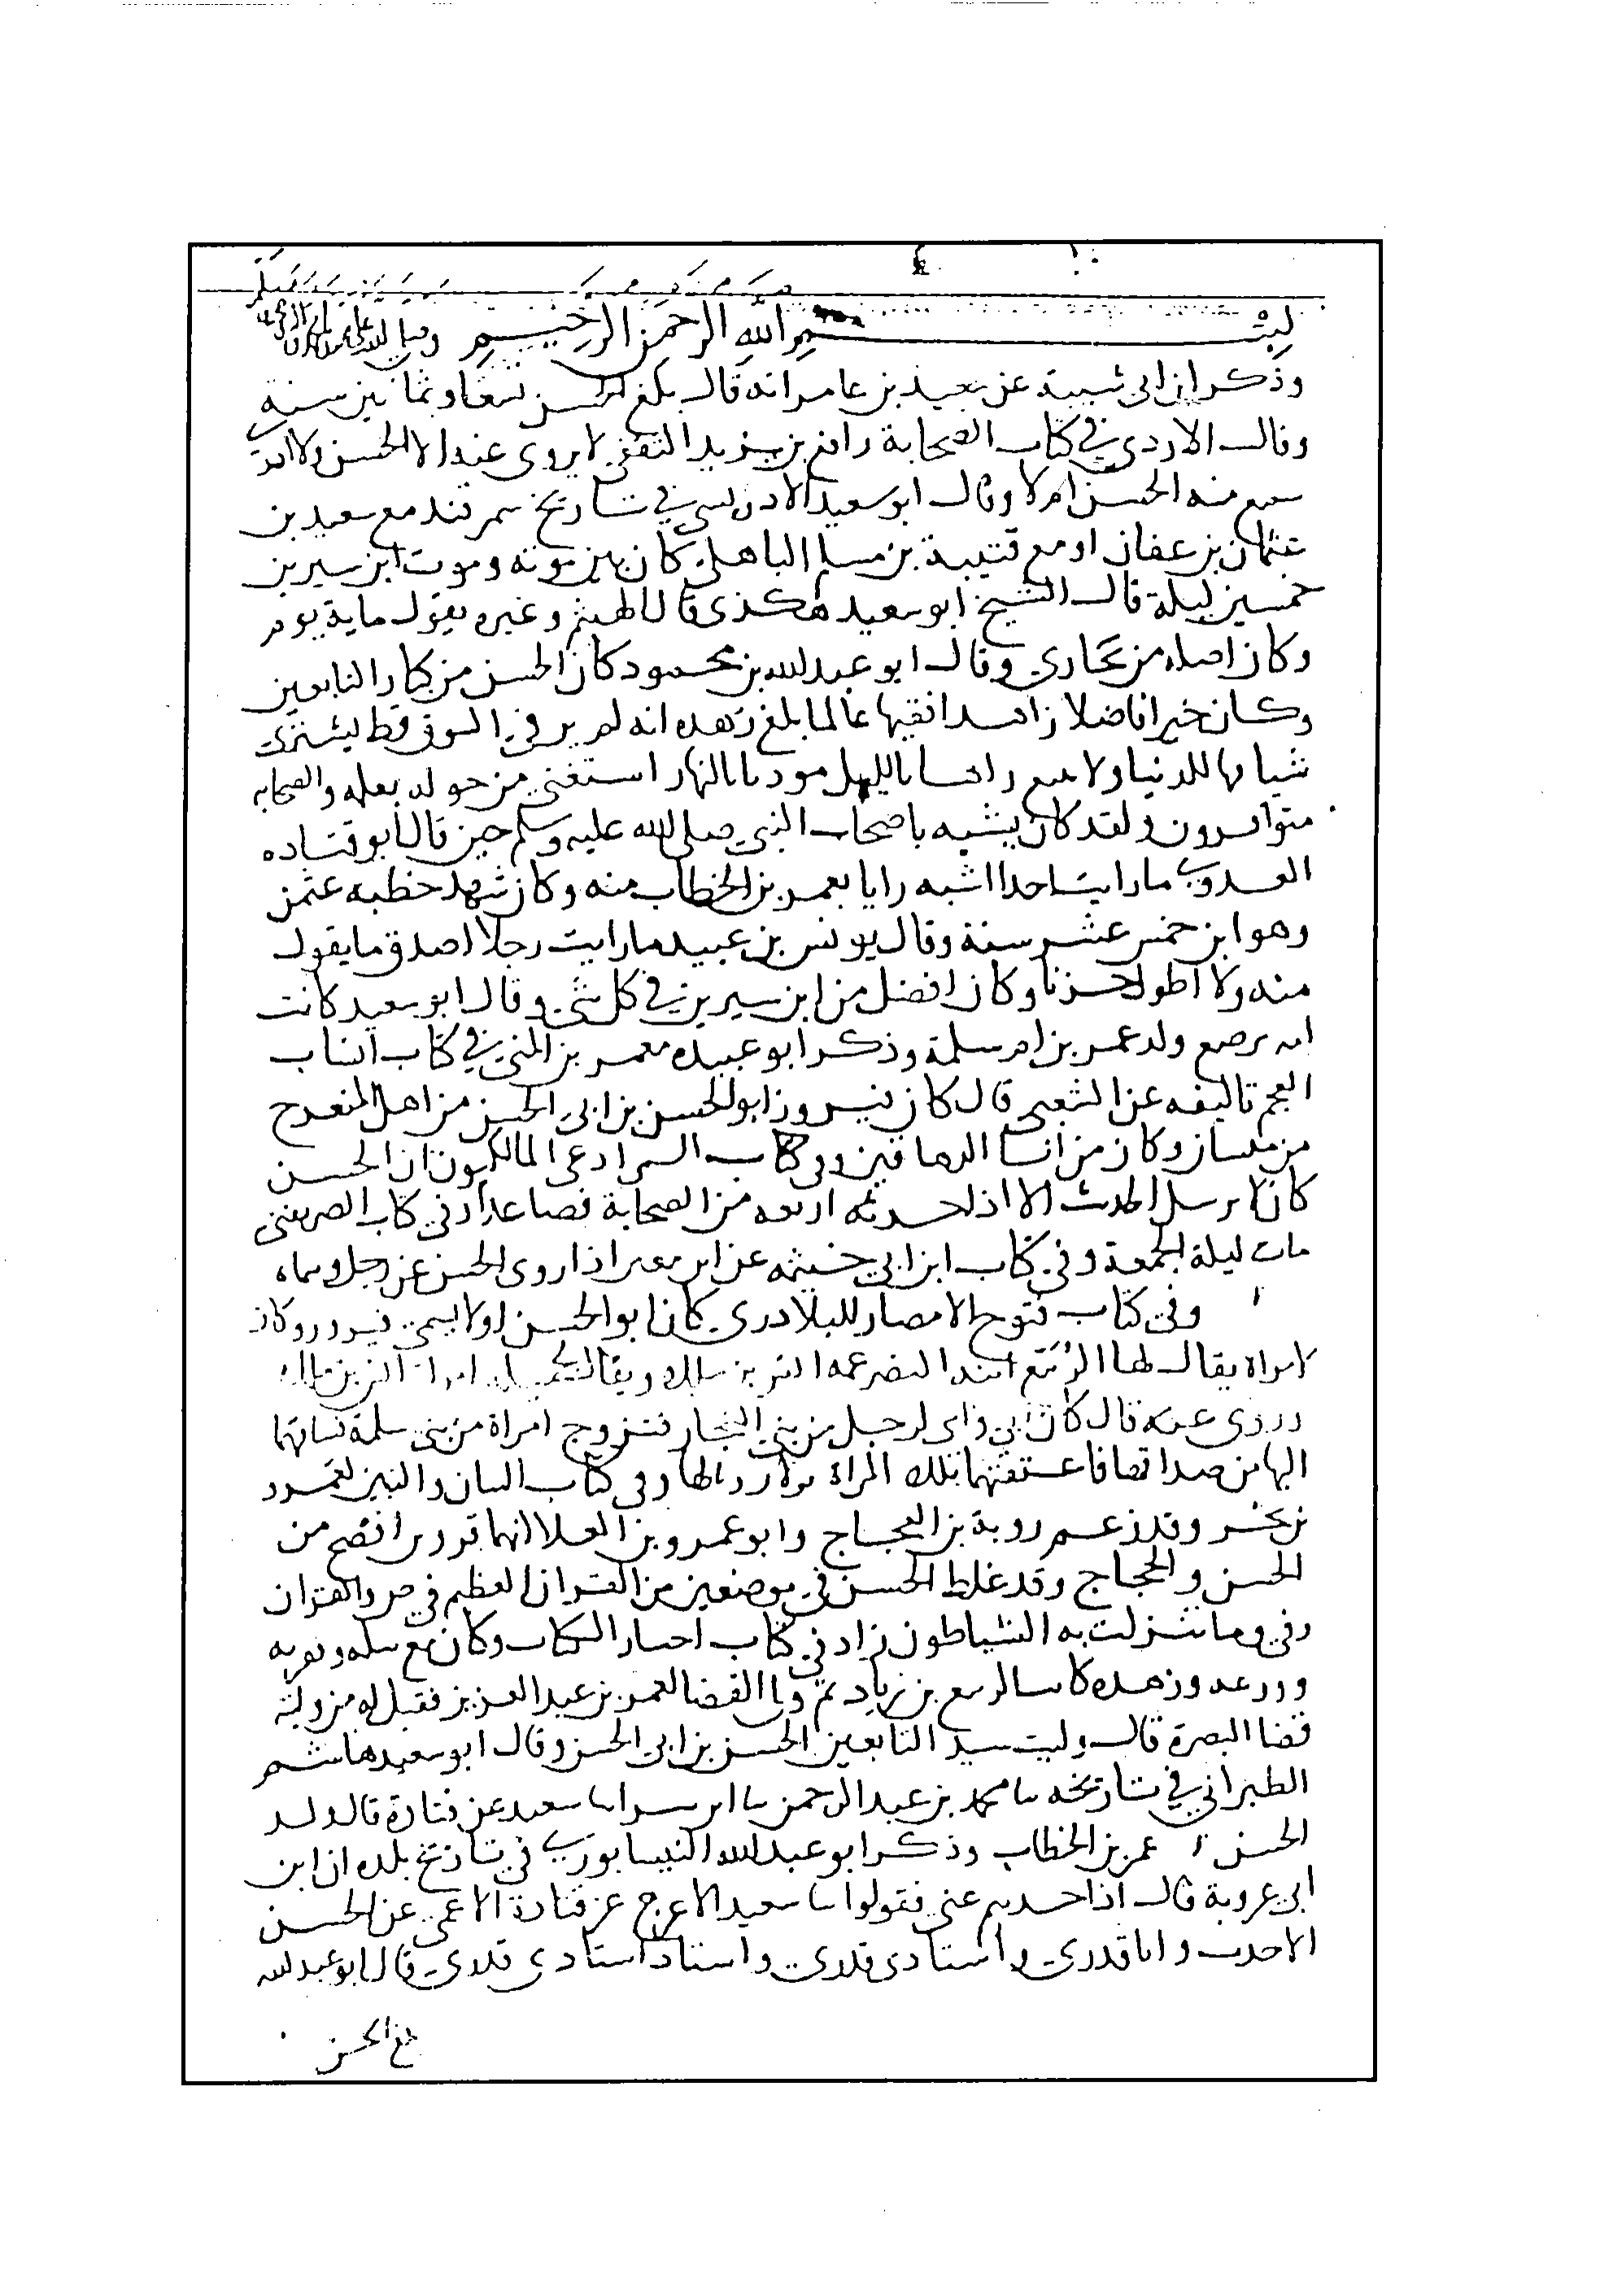 بسم الله الرحمن الرحيم وصلى الله على
وذكر ابن ابى شيبة عن سعيد بن عامر انه قال بلغ الحسن تسعا وثمانين سنة
وقال الازدى في كتاب الصحابة رافع بن يزيد الثقفى لا يروى عنه الا الحسن ولا ادرى
سمع منه الحسن ام لا وقال ابو سعيد الادريسى في تاريخ سمرقند مع سعيد بن
عثمان بن عفان او مع قتيبة بن مسلم الباهلى كان بين موته وموت ابن سيرين
خمسين ليلة قال الشيخ ابو سعيد هكذى قال الهيثم وغيره يقول ماية يوم
وكان اصله من بخارى وقال ابو عبد الله بن محمود كان الحسن من كبار التابعين
وكان خيرا فاضلا زاهدا فقيها عالما بلغ زهده انه لم ير في السوق قط ليشترى
شيا بها للدنيا ولا مع بالليل بالنهار استغنى من حوله بعلمه والصحابه
متوافرون ولقد كان يشبه باصحاب النبي صلى الله عليه وسلم حين قال ابو قتاده
العدوي ما رايت احدا اشبه رايا بعمر بن الخطاب منه وكان شهد خطبه عثمن
وهو ابن خمس عشر سنة وقال يونس بن عبيد ما رايت رجلا اصدق ما يقول
منه ولا اطول حزنا وكان افضل من ابن سيرين في كل شى وقال ابو سعيد كانت
امه ترضع ولد عمر بن ام سلمة وذكر ابو عبيده معمر بن المثنى في كتاب انساب
العجم تاليفه عن الشعبى قال كان فيروز ابو الحسن بن ابى الحسن من اهل
من ميسان وكان من الدهاقين وفى كتاب السر ادعى المالكيون ان الحسن
كان لا يرسل الحديث الا اذا حدثه اربعه من الصحابة فصاعدا وفي كتاب الصريفينى
مات ليلة الجمعة وفي كتاب ابن ابي خيثمه عن ابن معين اذا روى الحسن عن رجل وسماه
وفي كتاب فتوح الامصار للبلاذرى كان ابو الحسن اولا يسمى فيروز وكان
لامراة يقال لها الربيع ابنة النضر عمه انس بن مالك ويقال امراة انس بن مالك
وروى عنه قال كان ابى وامى لرجل من بني النجار فتزوج امراة من بنى سلمة فساقهما
اليها من صداقها فاعتقتهما تلك المراة وفى كتاب البيان والتبيين لعمرو
بن بحر وقد زعم روبة بن العجاج وابو عمرو بن العلا انهما لم يريا افصح من
الحسن والحجاج وقد غلط الحسن في موضعين من القران العظيم في ص والقران
وفي وما تنزلت به الشياطون زاد في كتاب اخبار الكتاب وكان مع
وورعه وزهده كاتبا للربيع بن زياد ثم ولى القضا لعمر بن عبد العزيز فقيل له من وليت
قضا البصرة قال وليت سيد التابعين الحسن بن ابى الحسن وقال ابو سعيد هاشم
الطبراني في تاريخه ثنا محمد بن عبد الرحمن ثنا سعيد عن قتادة قال ولد
الحسن عمر بن الخطاب وذكر ابو عبد الله النيسابوري في تاريخ بلده ان ابن
ابى عروبة قال اذا حدثتم عنى فقولوا ثنا سعيد الاعرج عن قتادة الاعمى عن الحسن
الاحدب وانا قدرى واستادى قدرى واستاد استادى قدرى قال ابو عبد الله
الحسن